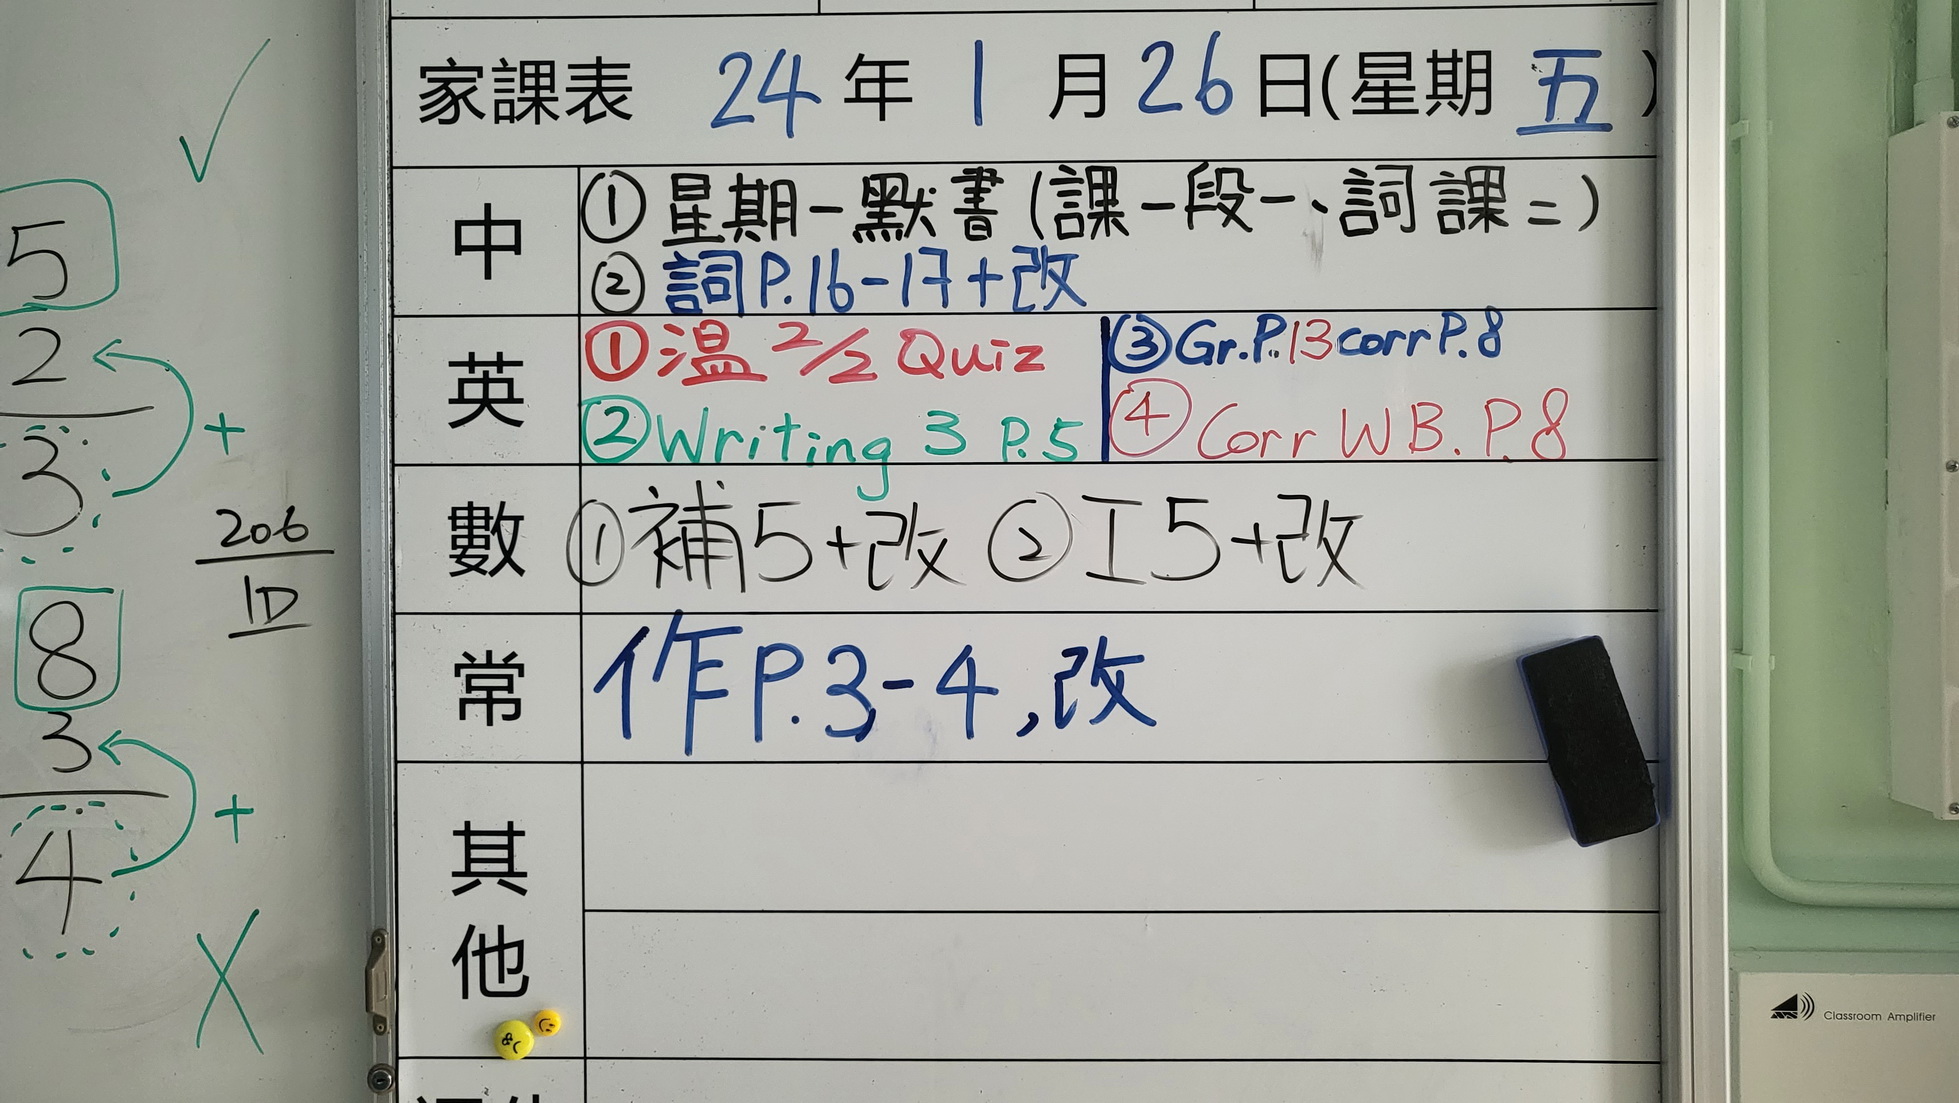 家課表 24年1月26日(星期五)
中
①星期一默書(課一段一、詞課二)
②詞P.16-17+改
英
①温2/2 Quiz
②Writing 3 P.5
③Gr.P.13 corr P.8
④Corr WB. P.8
數
①補5+改 ②工5+改
常
作P.3-4,改
其他
5
2
3
+
206
1D
8
3
4
+
Classroom Amplifier